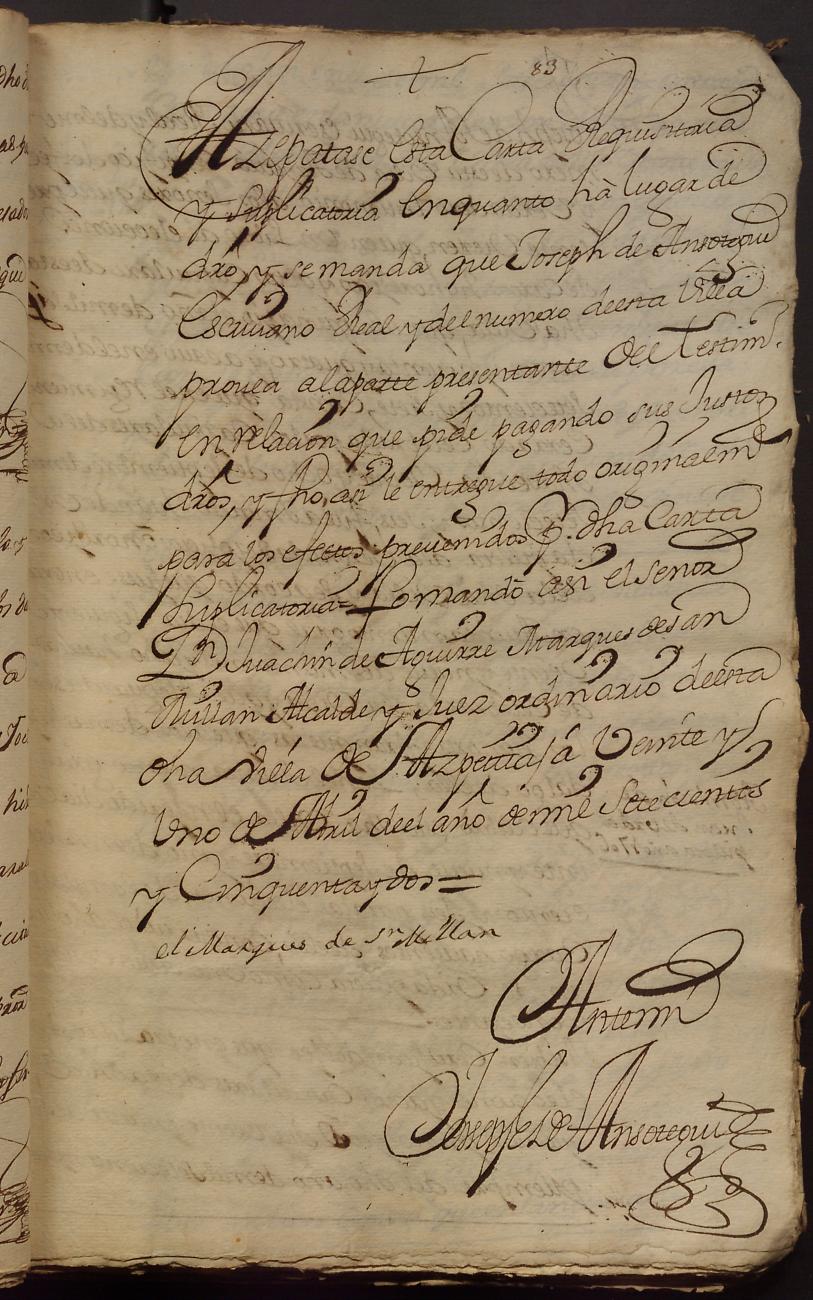 83
Azepatase esta Carta Requisitoria
y Suplicatoria enquanto hà lugar de
dro, y semanda que Joseph de Ansoregui
Escrivano Real y del numero deesta Villa
provea alaparte presentante del testim.
en relacion que pide pagando sus Justos
dros, y fho, asi le entregue todo originalm
para los efectos prevenidos p. dha Carta
Suplicatoria= Lo mandò asi el señor
Dn Juachin de Aguirre Marques de san
Millan Alcalde y Juez ordinario deesta
dha villa de Azpeitia, à Veinte y
Uno de Abril deel año de mil Setecientos
y Cinquenta y dos=
el Marques de Sn Millan
Antemi
Joseph de Ansoregui